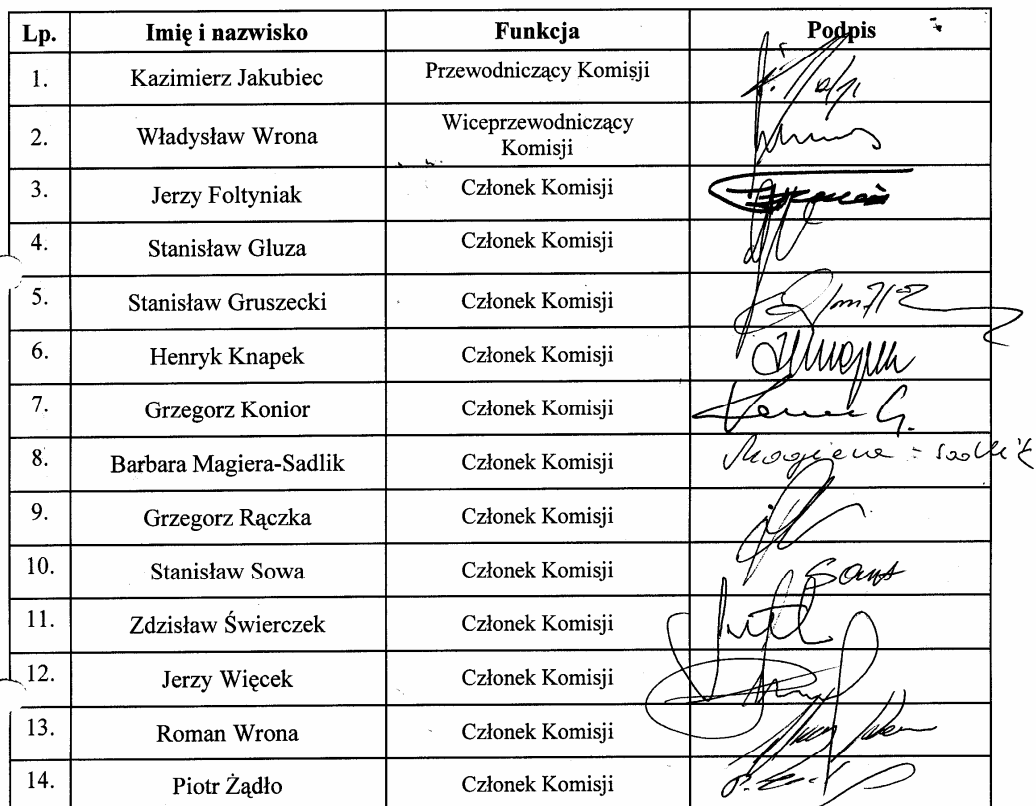 Lp. Imię i nazwisko Funkcja Podpis
1. Kazimierz Jakubiec Przewodniczący Komisji
2. Władysław Wrona Wiceprzewodniczący
Komisji
3. Jerzy Foltyniak Członek Komisji
4. Stanisław Gluza Członek Komisji
5. Stanisław Gruszecki Członek Komisji
6. Henryk Knapek Członek Komisji
7. Grzegorz Konior Członek Komisji
8. Barbara Magiera-Sadlik Członek Komisji Magiera - Sadlik
9. Grzegorz Rączka Członek Komisji
10. Stanisław Sowa Członek Komisji
11. Zdzisław Świerczek Członek Komisji
12. Jerzy Więcek Członek Komisji
13. Roman Wrona Członek Komisji
14. Piotr Żądło Członek Komisji